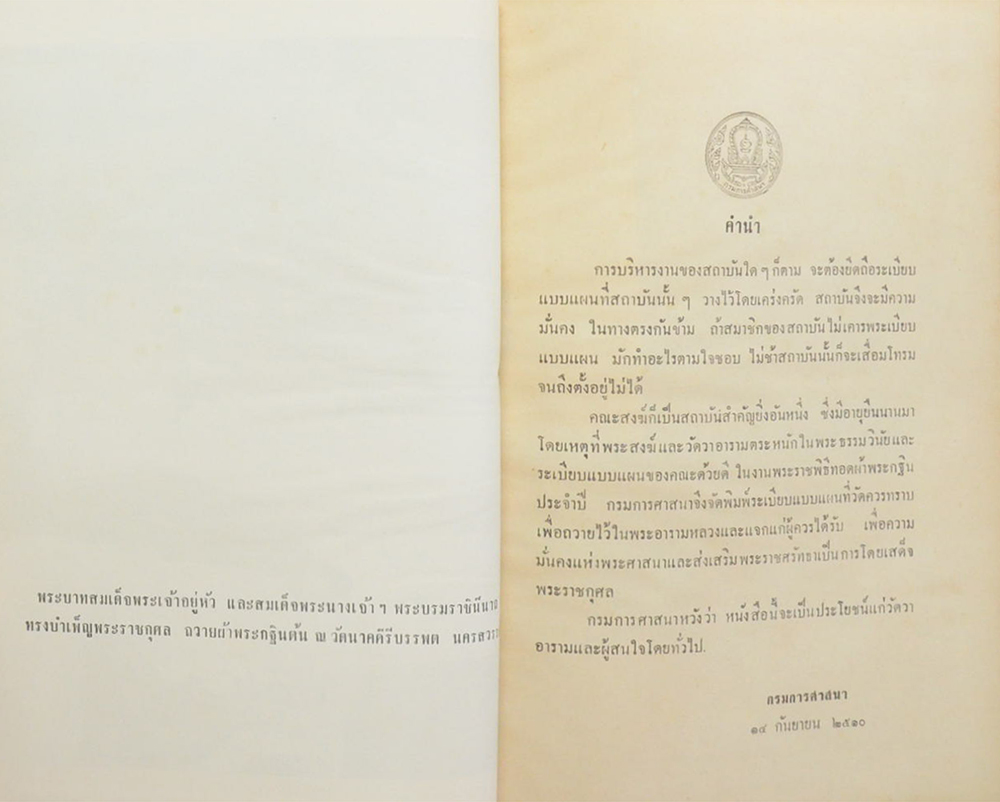 พระบาทสมเด็จพระเจ้าอยู่หัว และสมเด็จพระนางเจ้า ฯ พระบรมราชินีนาถ
ทรงบำเพ็ญพระราชกุศล ถวายผ้าพระกฐินต้น ณ วัดนาคคีรีบรรพต
กรมการศาสนา
คำนำ
การบริหารงานของสถาบันใด ๆ ก็ตาม จะต้องยึดถือระเบียบ
แบบแผนที่สถาบันนั้น ๆ วางไว้โดยเคร่งครัด สถาบันจึงจะมีความ
มั่นคง ในทางตรงกันข้าม ถ้าสมาชิกของสถาบันไม่เคารพระเบียบ
แบบแผน มักทำอะไรตามใจชอบ ไม่ช้าสถาบันนั้นก็จะเสื่อมโทรม
จนถึงตั้งอยู่ไม่ได้
คณะสงฆ์ก็เป็นสถาบันสำคัญยิ่งอันหนึ่ง ซึ่งมีอายุยืนนานมา
โดยเหตุที่พระสงฆ์และวัดวาอารามตระหนักในพระธรรมวินัยและ
ระเบียบแบบแผนของคณะด้วยดี ในงานพระราชพิธีทอดผ้าพระกฐิน
ประจำปี กรมการศาสนาจึงจัดพิมพ์ระเบียบแบบแผนที่วัดควรทราบ
เพื่อถวายไว้ในพระอารามหลวงและแจกแก่ผู้ควรได้รับ เพื่อความ
มั่นคงแห่งพระศาสนาและส่งเสริมพระราชศรัทธาเป็นการโดยเสด็จ
พระราชกุศล
กรมการศาสนาหวังว่า หนังสือนี้จะเป็นประโยชน์แก่วัดวา
อารามและผู้สนใจโดยทั่วไป.
กรมการศาสนา
๑๔ กันยายน ๒๕๑๐